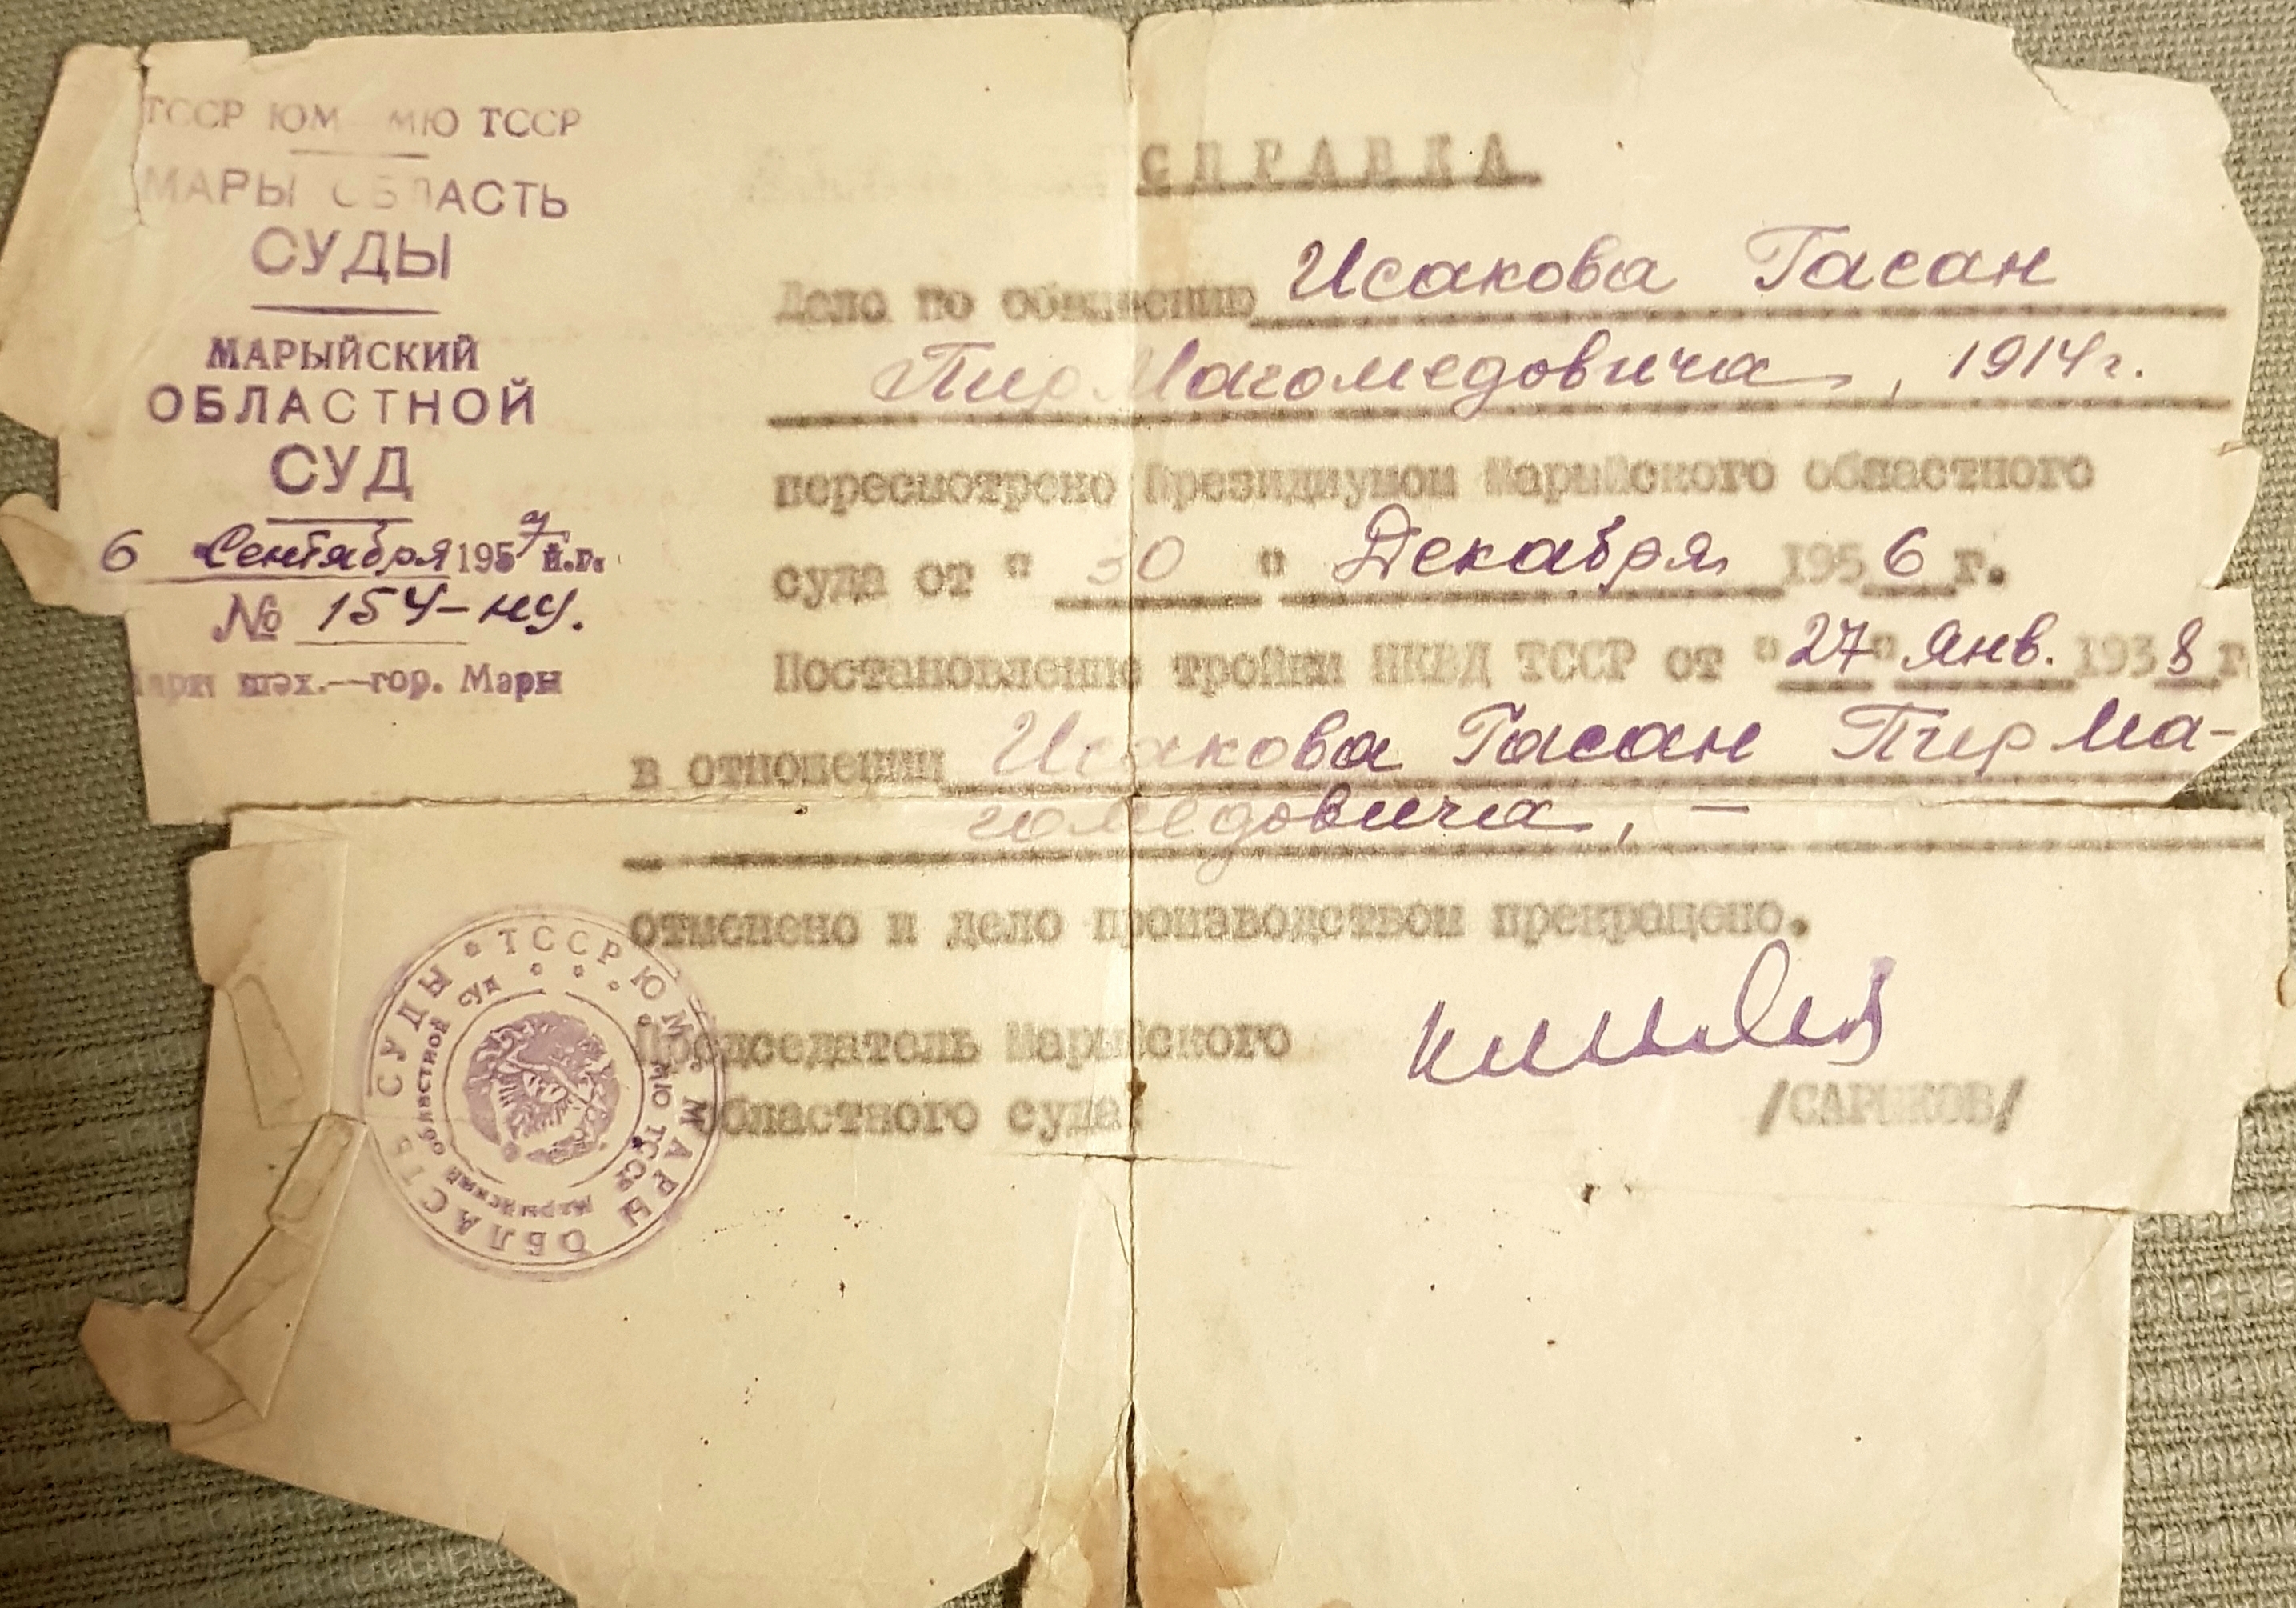 ТССР ЮМ МЮ ТССР
МАРЫ ОБЛАСТЬ
СУДЫ
МАРЫЙСКИЙ
ОБЛАСТНОЙ
СУД
6 Сентября 1957 й.г.
№ 154-ну.
Мары шэх.—гор. Мары
СПРАВКА
Дело по обвинению Исакова Гасан
Пир Магомедовича, 1914 г.
пересмотрено Президиумом Марыйского областного
суда от "30" Декабря 1956 г.
Постановление тройки НКВД ТССР от "27" Янв. 1938 г
в отношении Исакова Гасан Пир Ма-
гомедовича, —
отменено и дело производством прекращено.
Председатель Марыйского
областного суда:
/САРЫКОВ/
ТССР ЮМ МАРЫ ОБЛАСТЬ СУДЫ
МЮ ТССР Марыйский областной суд